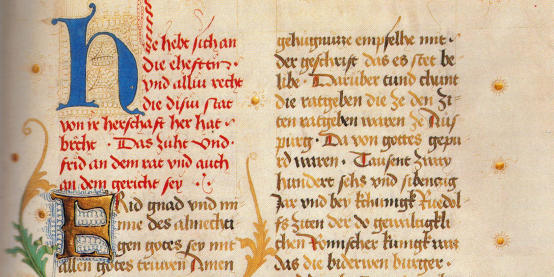 Hye hebt sich an
die ehefftin ·
vnd alliu recht
die disiu stat
von ir herschaft her hat ·
bracht · Das zuht vnd ·
frid an dem rat vnd auch
an dem gericht sey ·
Frid gnad vnd mi
nne des almechti
gen gotes sey mit
allen gotes truwen Amen
gehugnuzze empfelhe mit ·
der geschrift das es stet be
libe · Darüber tund chunt
die ratgeben die ze den zi
ten ratgeben waren ze Aus
purg · Da von gottes gepu
rd waren · Tausent zway
hundert sehs vnd sibentzig
Jar vnd bey khunigk Ruedol
fs ziten der do gewaltigkli
chen Römischer kunigk was
das die biderwen burger ·